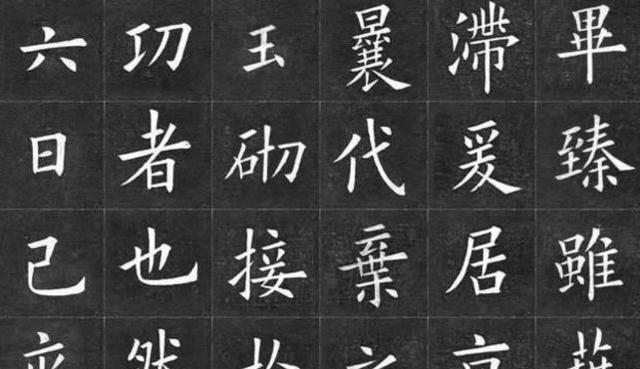 六功玉曩滯畢
日者砌代爰臻
己也接棄居雖